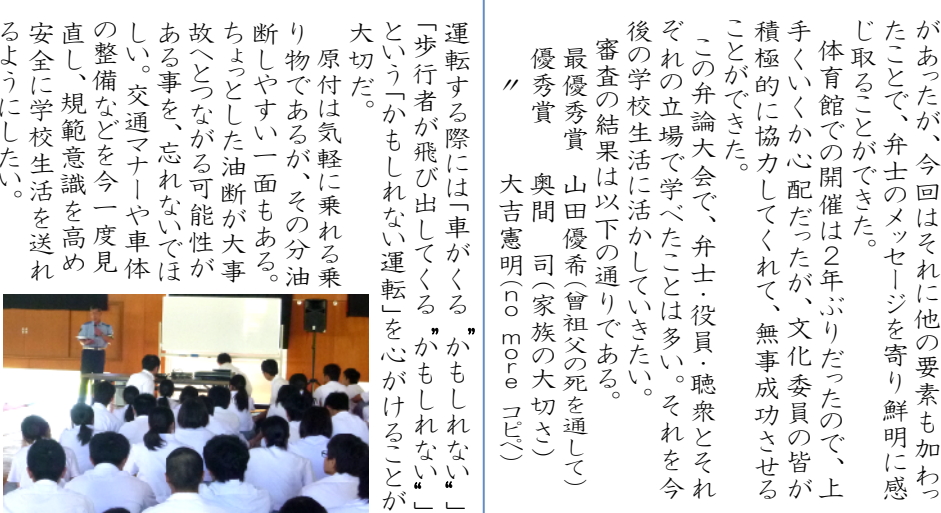 があったが、今回はそれに他の要素も加わっ
たことで、弁士のメッセージを寄り鮮明に感
じ取ることができた。
体育館での開催は２年ぶりだったので、上
手くいくか心配だったが、文化委員の皆が
積極的に協力してくれて、無事成功させる
ことができた。
この弁論大会で、弁士・役員・聴衆とそれ
ぞれの立場で学べたことは多い。それを今
後の学校生活に活かしていきたい。
審査の結果は以下の通りである。
最優秀賞　山田優希（曾祖父の死を通して）
優秀賞　奥間　司（家族の大切さ）
〃　大吉憲明（no more コピペ）
運転する際には「車がくる〝かもしれない〟」
「歩行者が飛び出してくる〝かもしれない〟」
という「かもしれない運転」を心がけることが
大切だ。
原付は気軽に乗れる乗
り物であるが、その分油
断しやすい一面もある。
ちょっとした油断が大事
故へとつながる可能性が
ある事を、忘れないでほ
しい。交通マナーや車体
の整備などを今一度見
直し、規範意識を高め
安全に学校生活を送れ
るようにしたい。